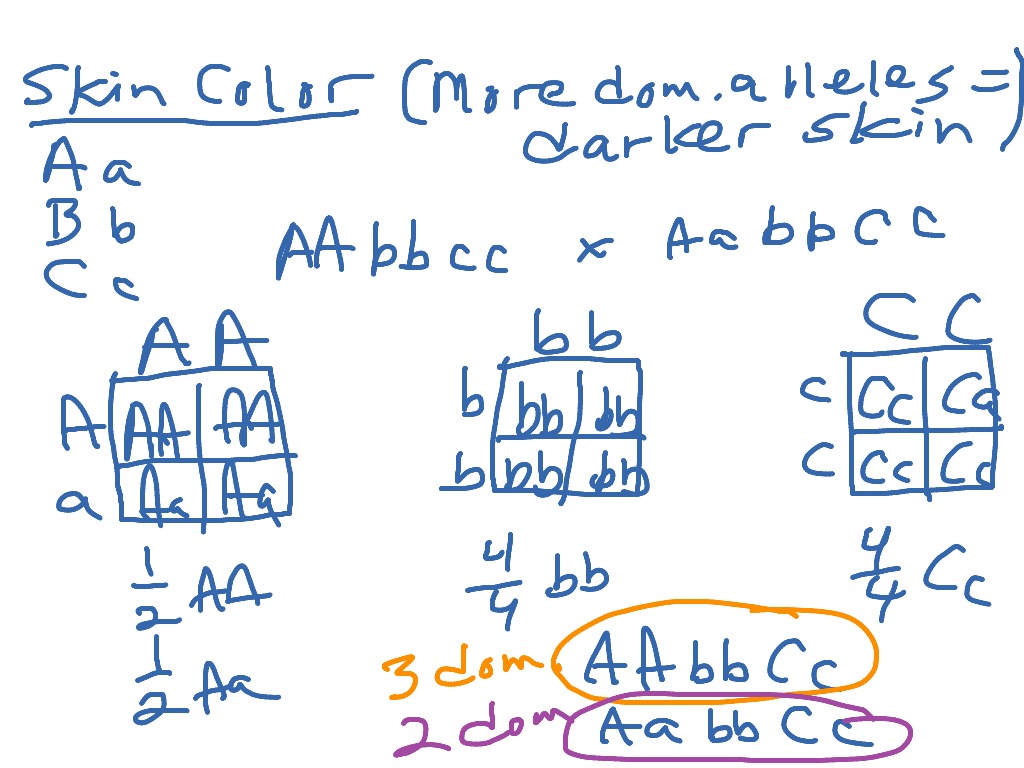 Skin Color (More dom. alleles =
darker skin)
A a
B b
C c
AAbbcc x AabbCC
A A
A AA AA
a Aa Aa
b b
b bb bb
b bb bb
C C
c Cc Cc
c Cc Cc
1/2 AA
1/2 Aa
4/4 bb
4/4 Cc
3 dom. AAbbCc
2 dom AabbCc